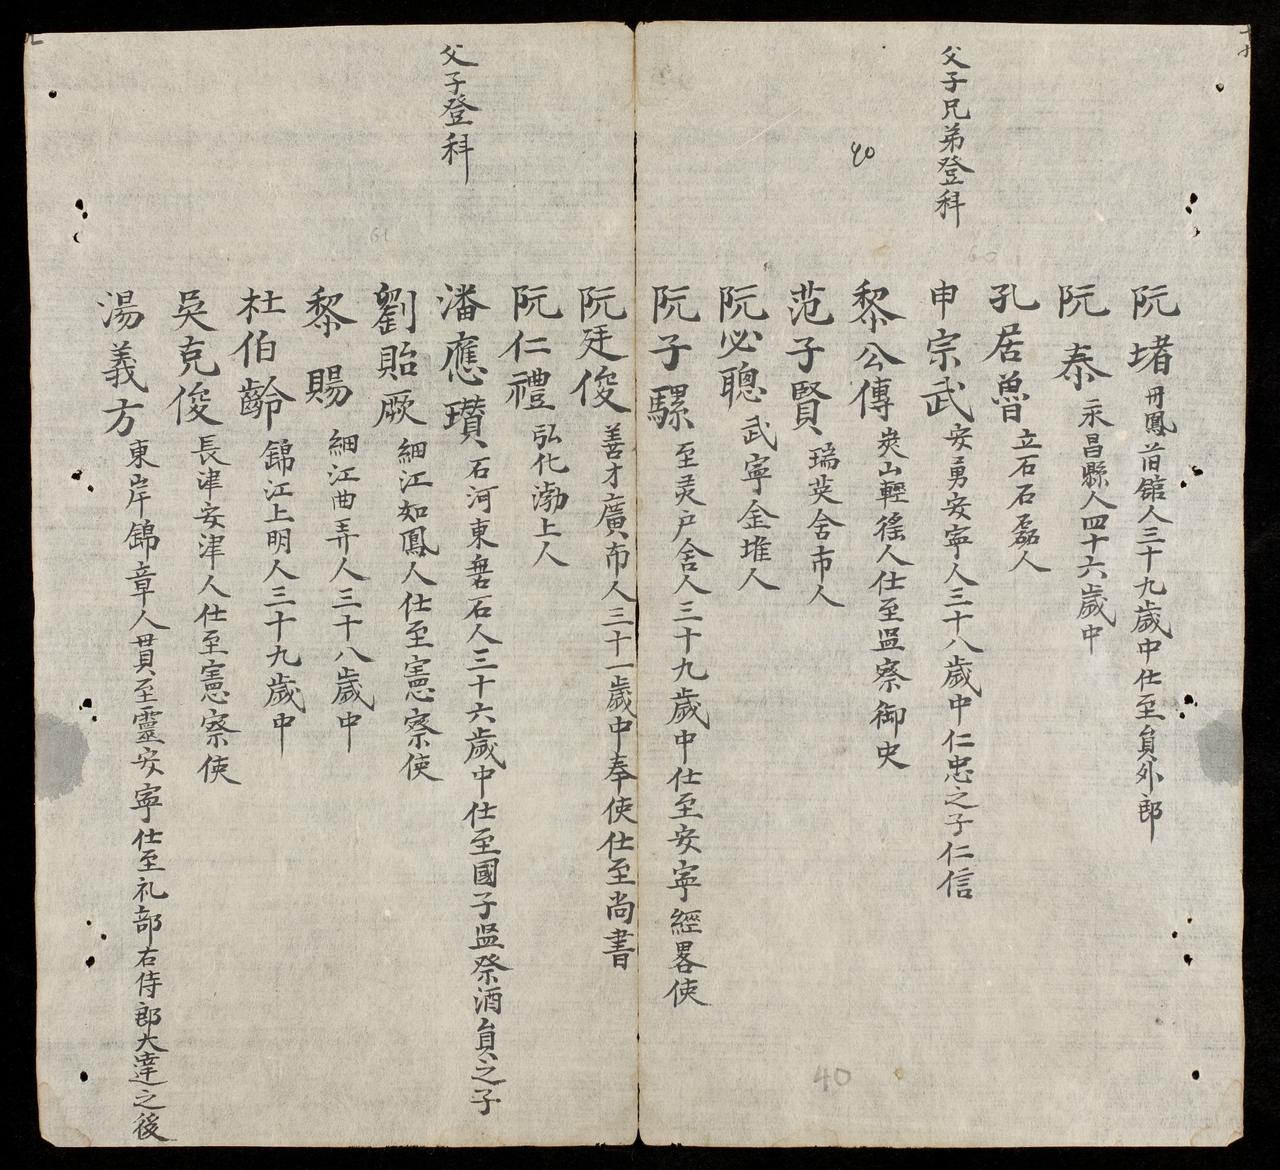 阮堵 丹鳳苜舘人三十九歲中仕至員外郎
阮泰 永昌縣人四十六歲中
孔居魯 立石石磊人
父子兄弟登科
申宗武 安勇安寧人三十八歲中仁忠之子仁信
40
黎公傳 炭山輕徭人仕至监察御史
范子賢 瑞英舍市人
阮必聰 武寧金堆人
阮子騾 至灵户舍人三十九歲中仕至安寧經畧使
阮廷俊 善才廣布人三十一歲中奉使仕至尚書
阮仁禮 弘化渤上人
父子登科
潘應瓚 石河東磐石人三十六歲中仕至國子监祭酒員之子
劉貽厥 細江如鳳人仕至憲察使
61
黎賜 細江曲弄人三十八歲中
杜伯齡 錦江上明人三十九歲中
吳克俊 長津安津人仕至憲察使
湯義方 東岸錦章人貫至靈安寧仕至礼部右侍郎大達之後
60
40